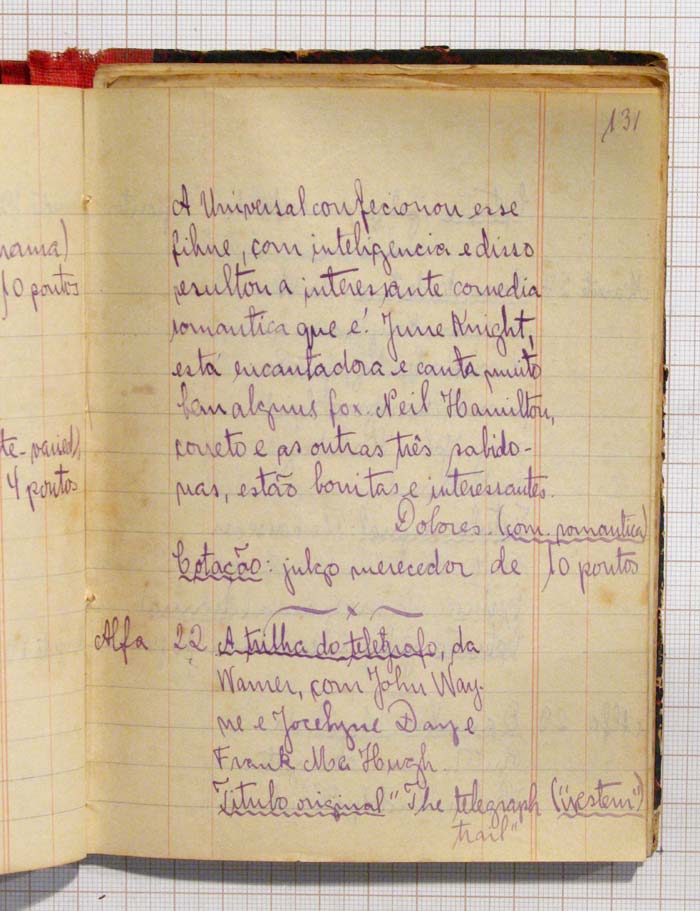 131
A Universal confecionou esse
filme, com inteligencia e disso
resultou a interessante comedia
romantica que é! June Knight,
está encantadora e canta muito
bem alguns fox. Neil Hamilton,
correto e as outras três sabido-
nas, estão bonitas e interessantes.
Dolores. (com. romantica)
Cotação: julgo merecedor de 10 pontos
x
Alfa 22 A trilha do telegrafo, da
Warner, com John Way-
ne e Jocelyne Day e
Frank Mac Hugh.
Titulo original "The telegraph ("western")
trail"
rama)
10 pontos
te-varied),
4 pontos